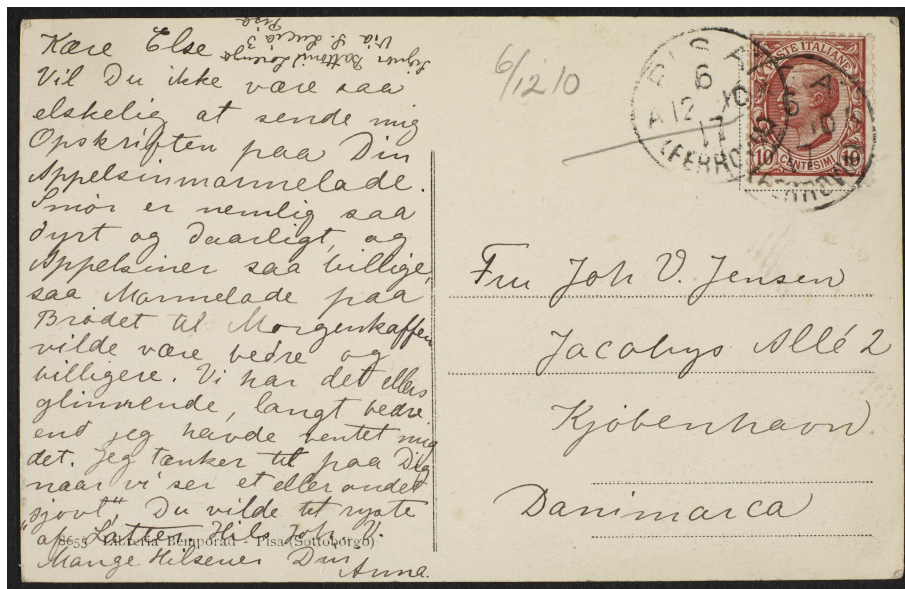 Kære Else
Vil Du ikke være saa
elskelig at sende mig
Opskriften paa Din
Appelsinmarmelade.
Smør er nemlig saa
dyrt og daarligt, og
Appelsiner saa billige,
saa Marmelade paa
Brødet til Morgenkaffen
vilde være bedre og
billigere. Vi har det ellers
glimrende, langt bedre
end jeg havde ventet mig
det. Jeg tænker tit paa Dig
naar vi ser et eller andet
"sjovt", Du vilde tit ryste
af Latter. Hils Joh. V.
Mange Hilsener Din
Anna.
Signor Battoni Lorenzo
Via S. Lucia 3
Pisa
8653 - Libreria Bemporad - Pisa (Sottoborgo)
6/12 10
PISA
6
A 12 10
17
(FERROVIA)
POSTE ITALIANE
10 CENTESIMI 10
Fru Joh V. Jensen
Jacobys Allé 2
Kjøbenhavn.
Danimarca